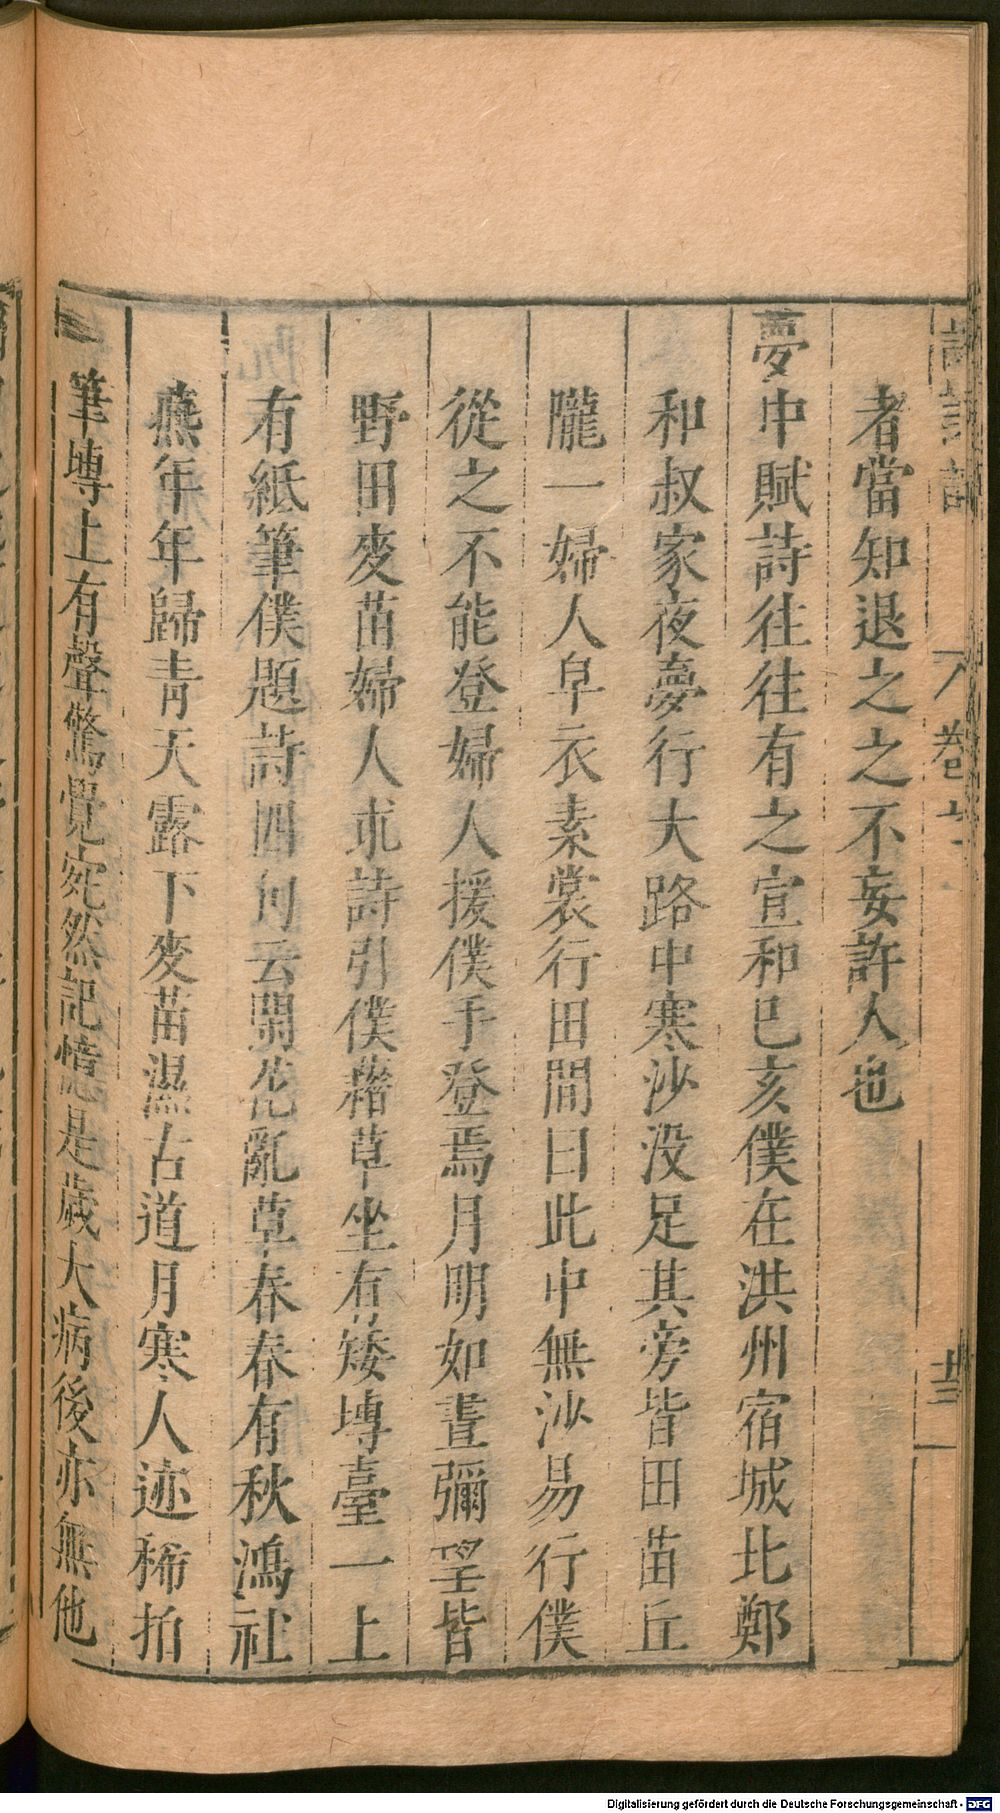 者當知退之之不妄許人也
夢中賦詩往往有之宣和巳亥僕在洪州宿城北鄭
和叔家夜夢行大路中寒沙没足其旁皆田苗丘
隴一婦人皁衣素裳行田間曰此中無沙易行僕
從之不能登婦人援僕手登焉月明如晝彌望皆
野田麥苗婦人求詩引僕藉草坐有矮塼臺一上
有紙筆僕題詩四句云閑花亂草春春有秋鴻社
燕年年歸青天露下麥苗濕古道月寒人迹稀拍
筆塼上有聲驚覺宛然記憶是歲大病後亦無他
卷
廿三
Digitalisierung gefördert durch die Deutsche Forschungsgemeinschaft - DFG